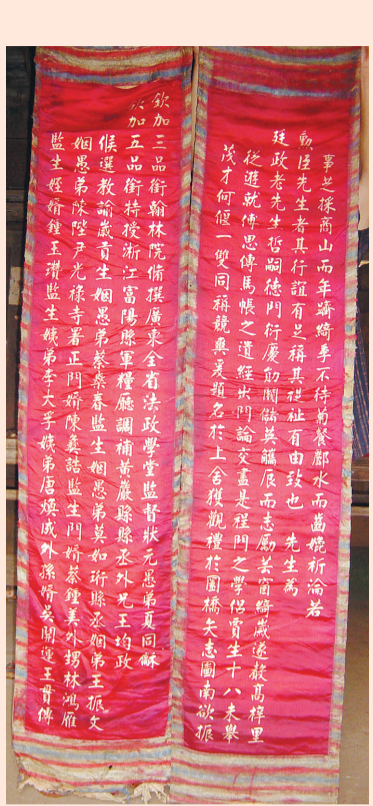 事芝採商山而年躋綺季不待菊餐酈水而齒媲祈淪若
勳臣先生者其行誼有足稱其祺祉有由致也 先生為
廷政老先生哲嗣德門衍慶觿辰而志勵芸窗綺歲遂教高梓里
從遊就傅思傳馬帳之遺經出門論文盡是程門之學侶賈生十八未舉
茂才何偃一雙同稱競爽爰題名於上舍獲觀禮於圜橋矢志圖南欲振
欽加三品銜翰林院脩撰廣東全省法政學堂監督狀元愚弟夏同龢
加五品銜特授浙江富陽縣軍糧廳調補黃巖縣縣丞外兄王均政
候選教諭歲貢生姻愚弟蔡桑春監生姻愚弟莫如珩縣丞姻弟王振文
姻愚弟陳陛尹光祿寺署正門婿陳彝誥監生門婿蔡鍾美外甥林鴻雁
監生姪婿鍾玉瓚監生姨弟李大孚姨弟唐煥成外孫婿吳開運王貫傳